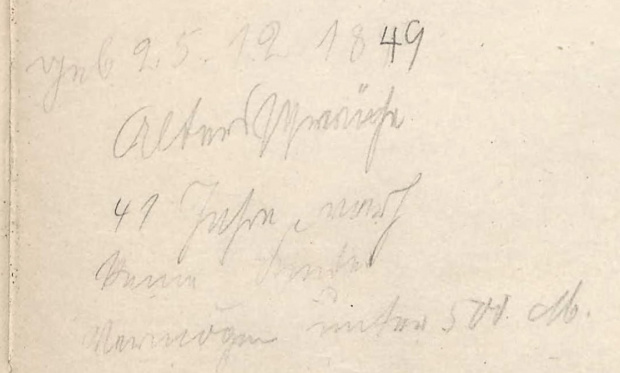 geb 25. 12 1849
Altersschwäche
41 Jahre, noch
keine Kinder
Vermögen unter 500 M.